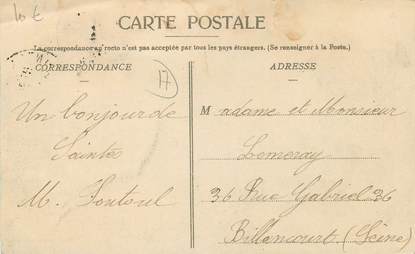 10 €
CARTE POSTALE
La correspondance au recto n'est pas acceptée par tous les pays étrangers. (Se renseigner à la Poste.)
CORRESPONDANCE
17
Un bonjour de
Saintes
M.
ADRESSE
Madame et Monsieur
Lemeray
36 Rue Gabriel 36
Billancourt (Seine)